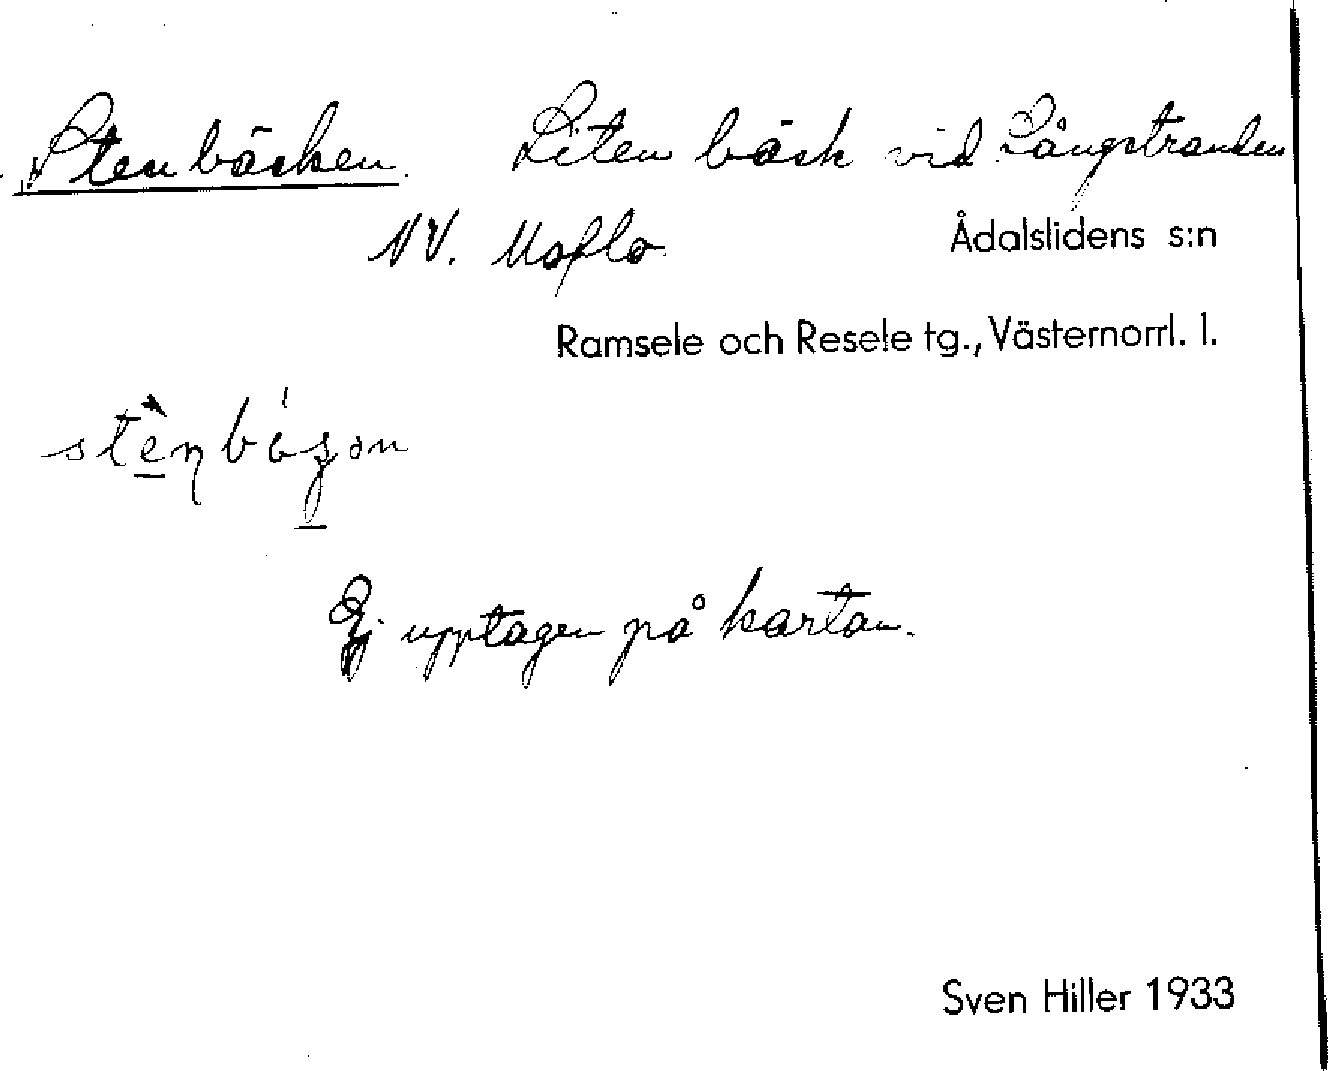 Stenbäcken. Liten bäck vid Långstranden
NV. Moflo
Ådalslidens s:n
Ramsele och Resele tg., Västernorrl. l.
Ej upptagen på kartan.
Sven Hiller 1933